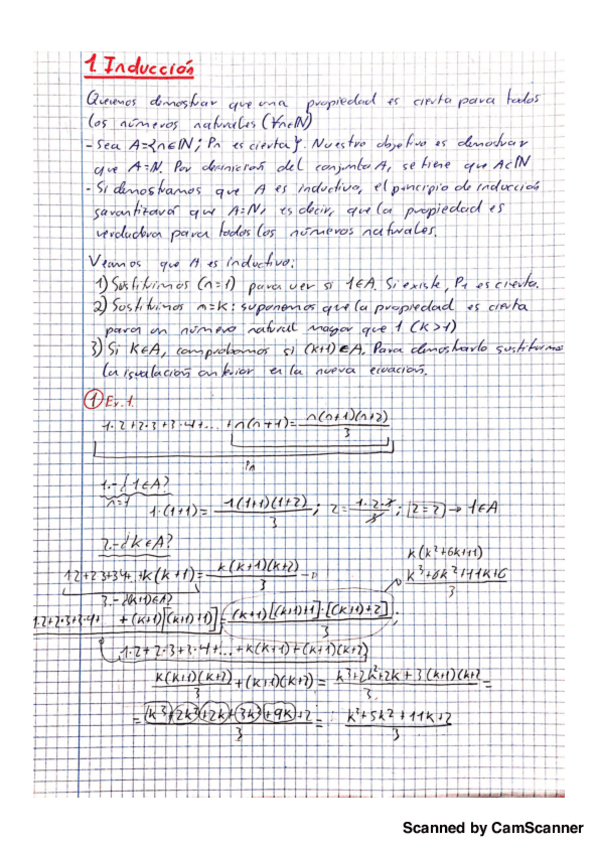 1. Inducción
Queremos demostrar que una propiedad es cierta para todos
los números naturales (∀n∈ℕ)
- Sea A={n∈ℕ; Pn es cierta}. Nuestro objetivo es demostrar
que A=ℕ. Por definición del conjunto A, se tiene que A⊂ℕ
- Si demostramos que A es inductivo, el principio de inducción
garantizará que A=ℕ, es decir, que la propiedad es
verdadera para todos los números naturales.
Veamos que A es inductivo:
1) Sustituimos (n=1) para ver si 1∈A. Si existe, P1 es cierta.
2) Sustituimos n=k: suponemos que la propiedad es cierta
para un número natural mayor que 1 (k>1)
3) Si k∈A, comprobamos si (k+1)∈A. Para demostrarlo sustituimos
la igualación anterior en la nueva ecuación.
① Ex. 1.
1·2+2·3+3·4+...+n(n+1)= n(n+1)(n+2)/3
Pn
1.-¿1∈A?
n=1
1·(1+1)= 1(1+1)(1+2)/3 ; 2= 1·2·3/3 ; 2=2 → 1∈A
2.-¿k∈A?
k(k²+6k+11)
1·2+2·3+3·4+...+k(k+1)= k(k+1)(k+2)/3
k³+6k²+11k+6/3
3.-¿(k+1)∈A?
1·2+2·3+3·4+ +(k+1)[(k+1)+1]= (k+1)[(k+1)+1]·[(k+1)+2]/3 ;
1·2+2·3+3·4+...+k(k+1)+(k+1)(k+2)
k(k+1)(k+2)/3 +(k+1)(k+2)= k³+2k²+2k+3(k+1)(k+2)/3 =
= k³+2k²+2k+3k²+9k+2/3 = k³+5k²+11k+2/3
Scanned by CamScanner